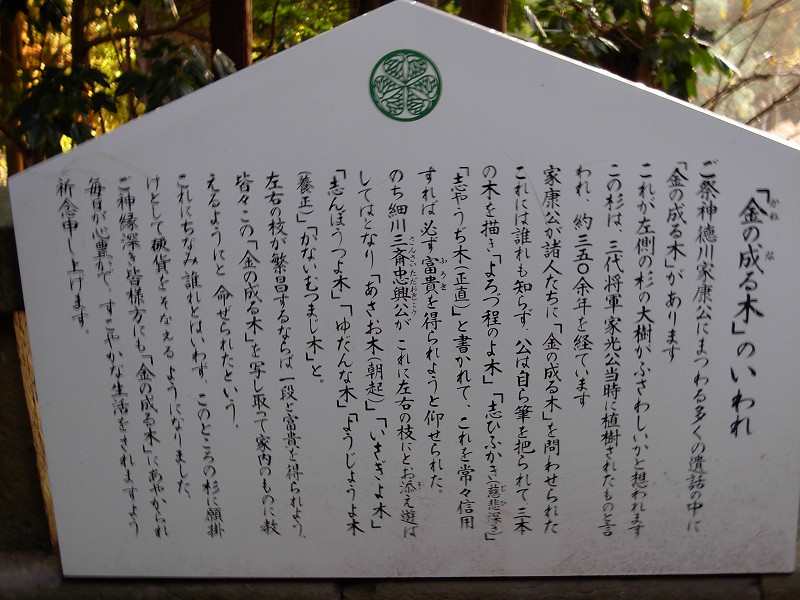 「金の成る木」のいわれ
ご祭神徳川家康公にまつわる多くの遺話の中に
「金の成る木」があります
これが左側の杉の大樹がふさわしいかと想われます
この杉は、三代将軍家光公当時に植樹されたものと言
われ、約三五〇余年を経ています
家康公が諸人たちに「金の成る木」を問わせられた
これには誰れも知らず、公は自ら筆を把られて三本
の木を描き「よろづ程のよ木」「志ひふかき(慈悲深き)」
「志やうぢ木(正直)」と書かれて、これを常々信用
すれば必ず富貴を得られようと仰せられた。
のち細川三斎忠興公が これに左右の枝にとお添え遊ば
してはとなり「あさお木(朝起)」「いさぎよ木」
「志んぼうつよ木」「ゆだんな木」「ようじょうよ木
(養正)」「かないむつまじ木」と。
左右の枝が繁昌するならば一段と富貴を得られよう、
皆々この「金の成る木」を写し取って家内のものに教
えるようにと 命ぜられたという。
これにちなみ誰れとはいわず、このところの杉に願掛
けとして硬貨をそなえる ようになりました、
ご神縁深き皆様方にも「金の成る木」にあやかられ
毎日が心豊かで、すこやかな生活をされますよう
祈念申し上げます。